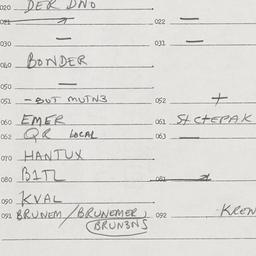 020 DER DNO
021 022 —
030 — 031 —
040 BONDER
050 —
051 - BUT MUTN3 052 +
060 EMER 061 St Ct EPAK
062 QR LOCAL 063 —
070 HANTUX
080 B1TL 081
090 KVAL
091 BRUNEM / BRUNEMER, 092 KREN
BRUN3NS